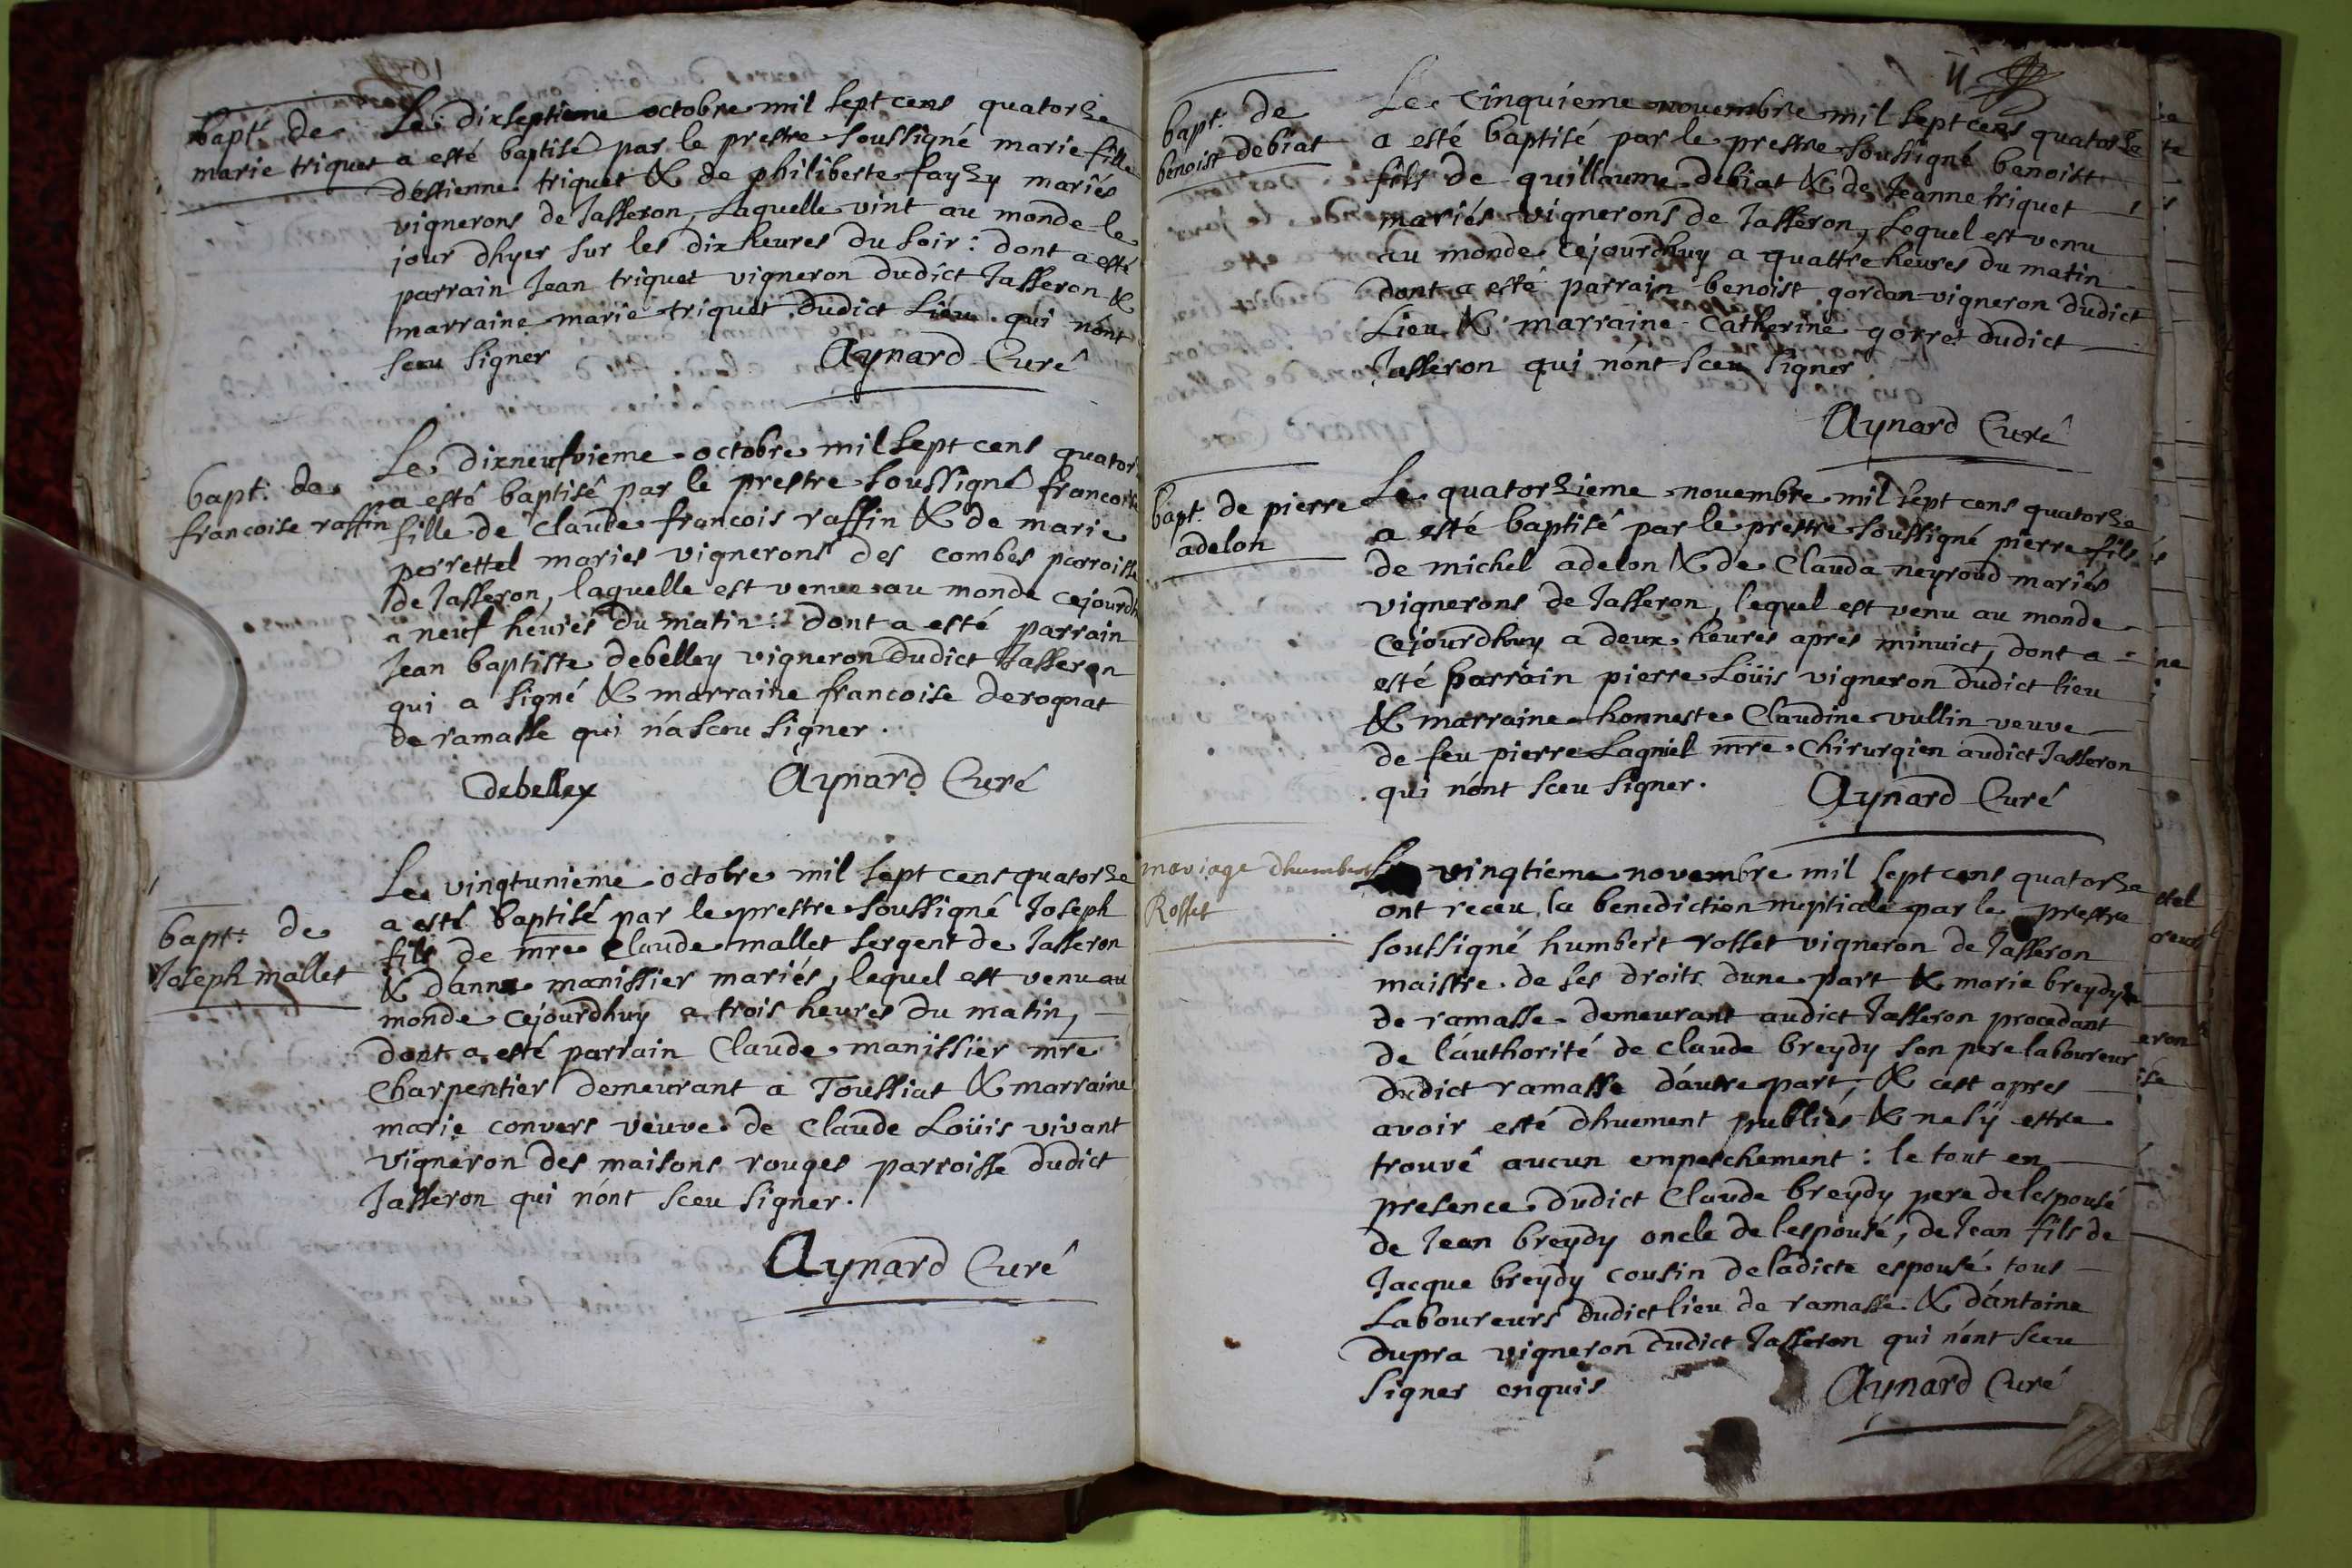 bapt. de
marie triquet
Le dixseptieme octobre mil sept cens quatorze
a esté baptisé par le prestre soussigné marie fille
déstienne triquet & de philiberte fayzy mariés
vignerons de Jasseron, Laquelle vint au monde le
jour dhyer sur les dix heures du soir : dont a esté
parrain Jean triquet vigneron dudict Jasseron &
marraine marie triquet dudict Lieu qui nónt
sceu signer
Aynard Curé
bapt. de
francoise raffin
Le dixneufvieme octobre mil sept cens quator
a esté baptisé par le prestre soussigné francoise
fille de Claude francois raffin & de marie
perrettel maries vignerons des combes parroisse
de Jasseron, laquelle est venue au monde cejourdh
a neuf heures du matin : dont a esté parrain
Jean baptiste debelley vigneron dudict Jasseron
qui a signé & marraine francoise derognat
de ramasse qui ná sceu signer.
debelley
Aynard Curé
bapt. de
Joseph mallet
Le vingtunieme octobre mil sept cens quatorze
a esté baptisé par le prestre soussigné Joseph
fils de mre Claude mallet sergent de Jasseron
& dánne manissier mariés, lequel est venu au
monde cejourdhuy a trois heures du matin,
dont a esté parrain Claude manissier mre
Charpentier demeurant a Toussiat & marraine
marie convers veuve de Claude Loüis vivant
vigneron des maisons rouges parroisse dudict
Jasseron qui nónt sceu signer.
Aynard Curé
11
bapt. de
benoist debiat
Le Cinquieme novembre mil sept cens quatorze
a esté baptisé par le prestre soussigné benoist
fils de guillaume debiat & de Jeanne triquet
mariés vignerons de Jasseron, Lequel est venu
au monde cejourdhuy a quattre heures du matin
dont a esté parrain benoist gordon vigneron dudict
Lieu & marraine Catherine gorret dudict
Jasseron qui nónt sceu signer
Aynard Curé
bapt. de pierre
adelon
Le quatorzieme novembre mil sept cens quatorze
a esté baptisé par le prestre soussigné pierre fils
de michel adelon & de Clauda neyroud mariés
vignerons de Jasseron, lequel est venu au monde
cejourdhuy a deux heures apres minuict, dont a
esté parrain pierre Loüis vigneron dudict lieu
& marraine honneste Claudine vullin veuve
de feu pierre Lagniel mre Chirurgien audict Jasseron
qui nónt sceu signer.
Aynard Curé
mariage dhumbert
Rosset
Le vingtieme novembre mil sept cens quatorze
ont receu la benediction nuptiale par le prestre
soussigné humbert rosset vigneron de Jasseron
maistre de ses droits dune part & marie breydy
de ramasse demeurant audict Jasseron procedant
de láuthorité de claude breydy son pere laboureur
dudict ramasse dáutre part, & cest apres
avoir esté dhuement publiés & nesý estre
trouvé aucun empeschement : le tout en
presence dudict Claude breydy pere de lespousé
de Jean breydy oncle de lespousé, de Jean fils de
Jacque breydy cousin de ladicte espousé tous
Laboureurs dudict lieu de ramasse & dántoine
dupra vigneron dudict Jasseron qui nónt sceu
signer enquis
Aynard Curé